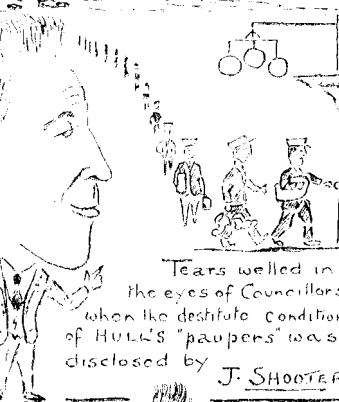 Tears welled in
the eyes of Councillors
when the destitute condition
of HULL'S "paupers" was
disclosed by
J. SHOOTER